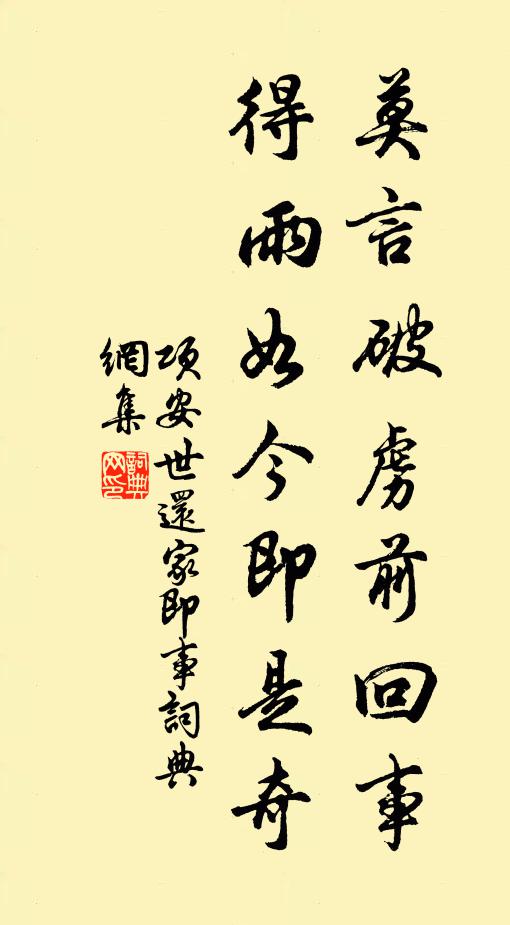 莫言破虜前回事
得雨如今即是奇
項安世還家即事詞典
網集
詞典網印